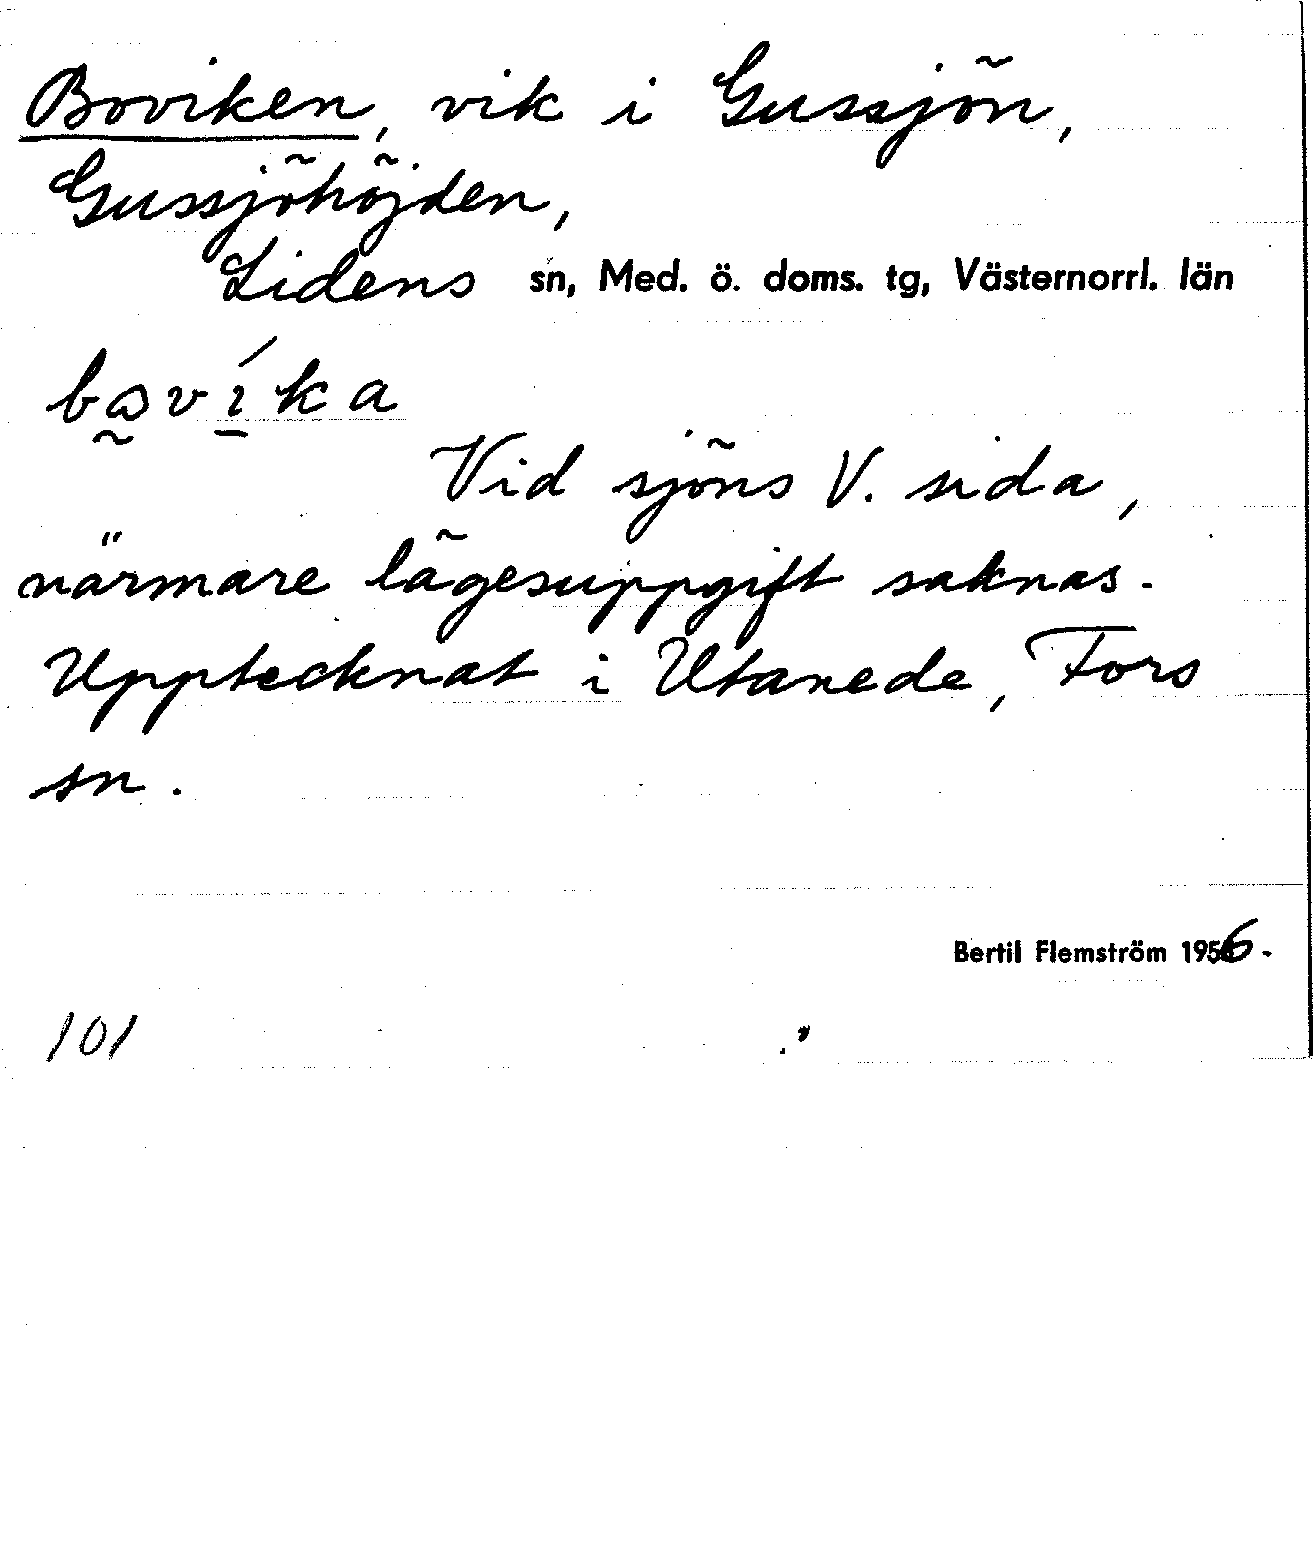 Boviken, vik i Gussjön,
Gussjöhöjden,
Lidens sn, Med. ö. doms. tg, Västernorrl. län
Vid sjöns V. sida,
närmare lägesuppgift saknas.
Upptecknat i Utanede, Fors
sn.
Bertil Flemström 1956.
101